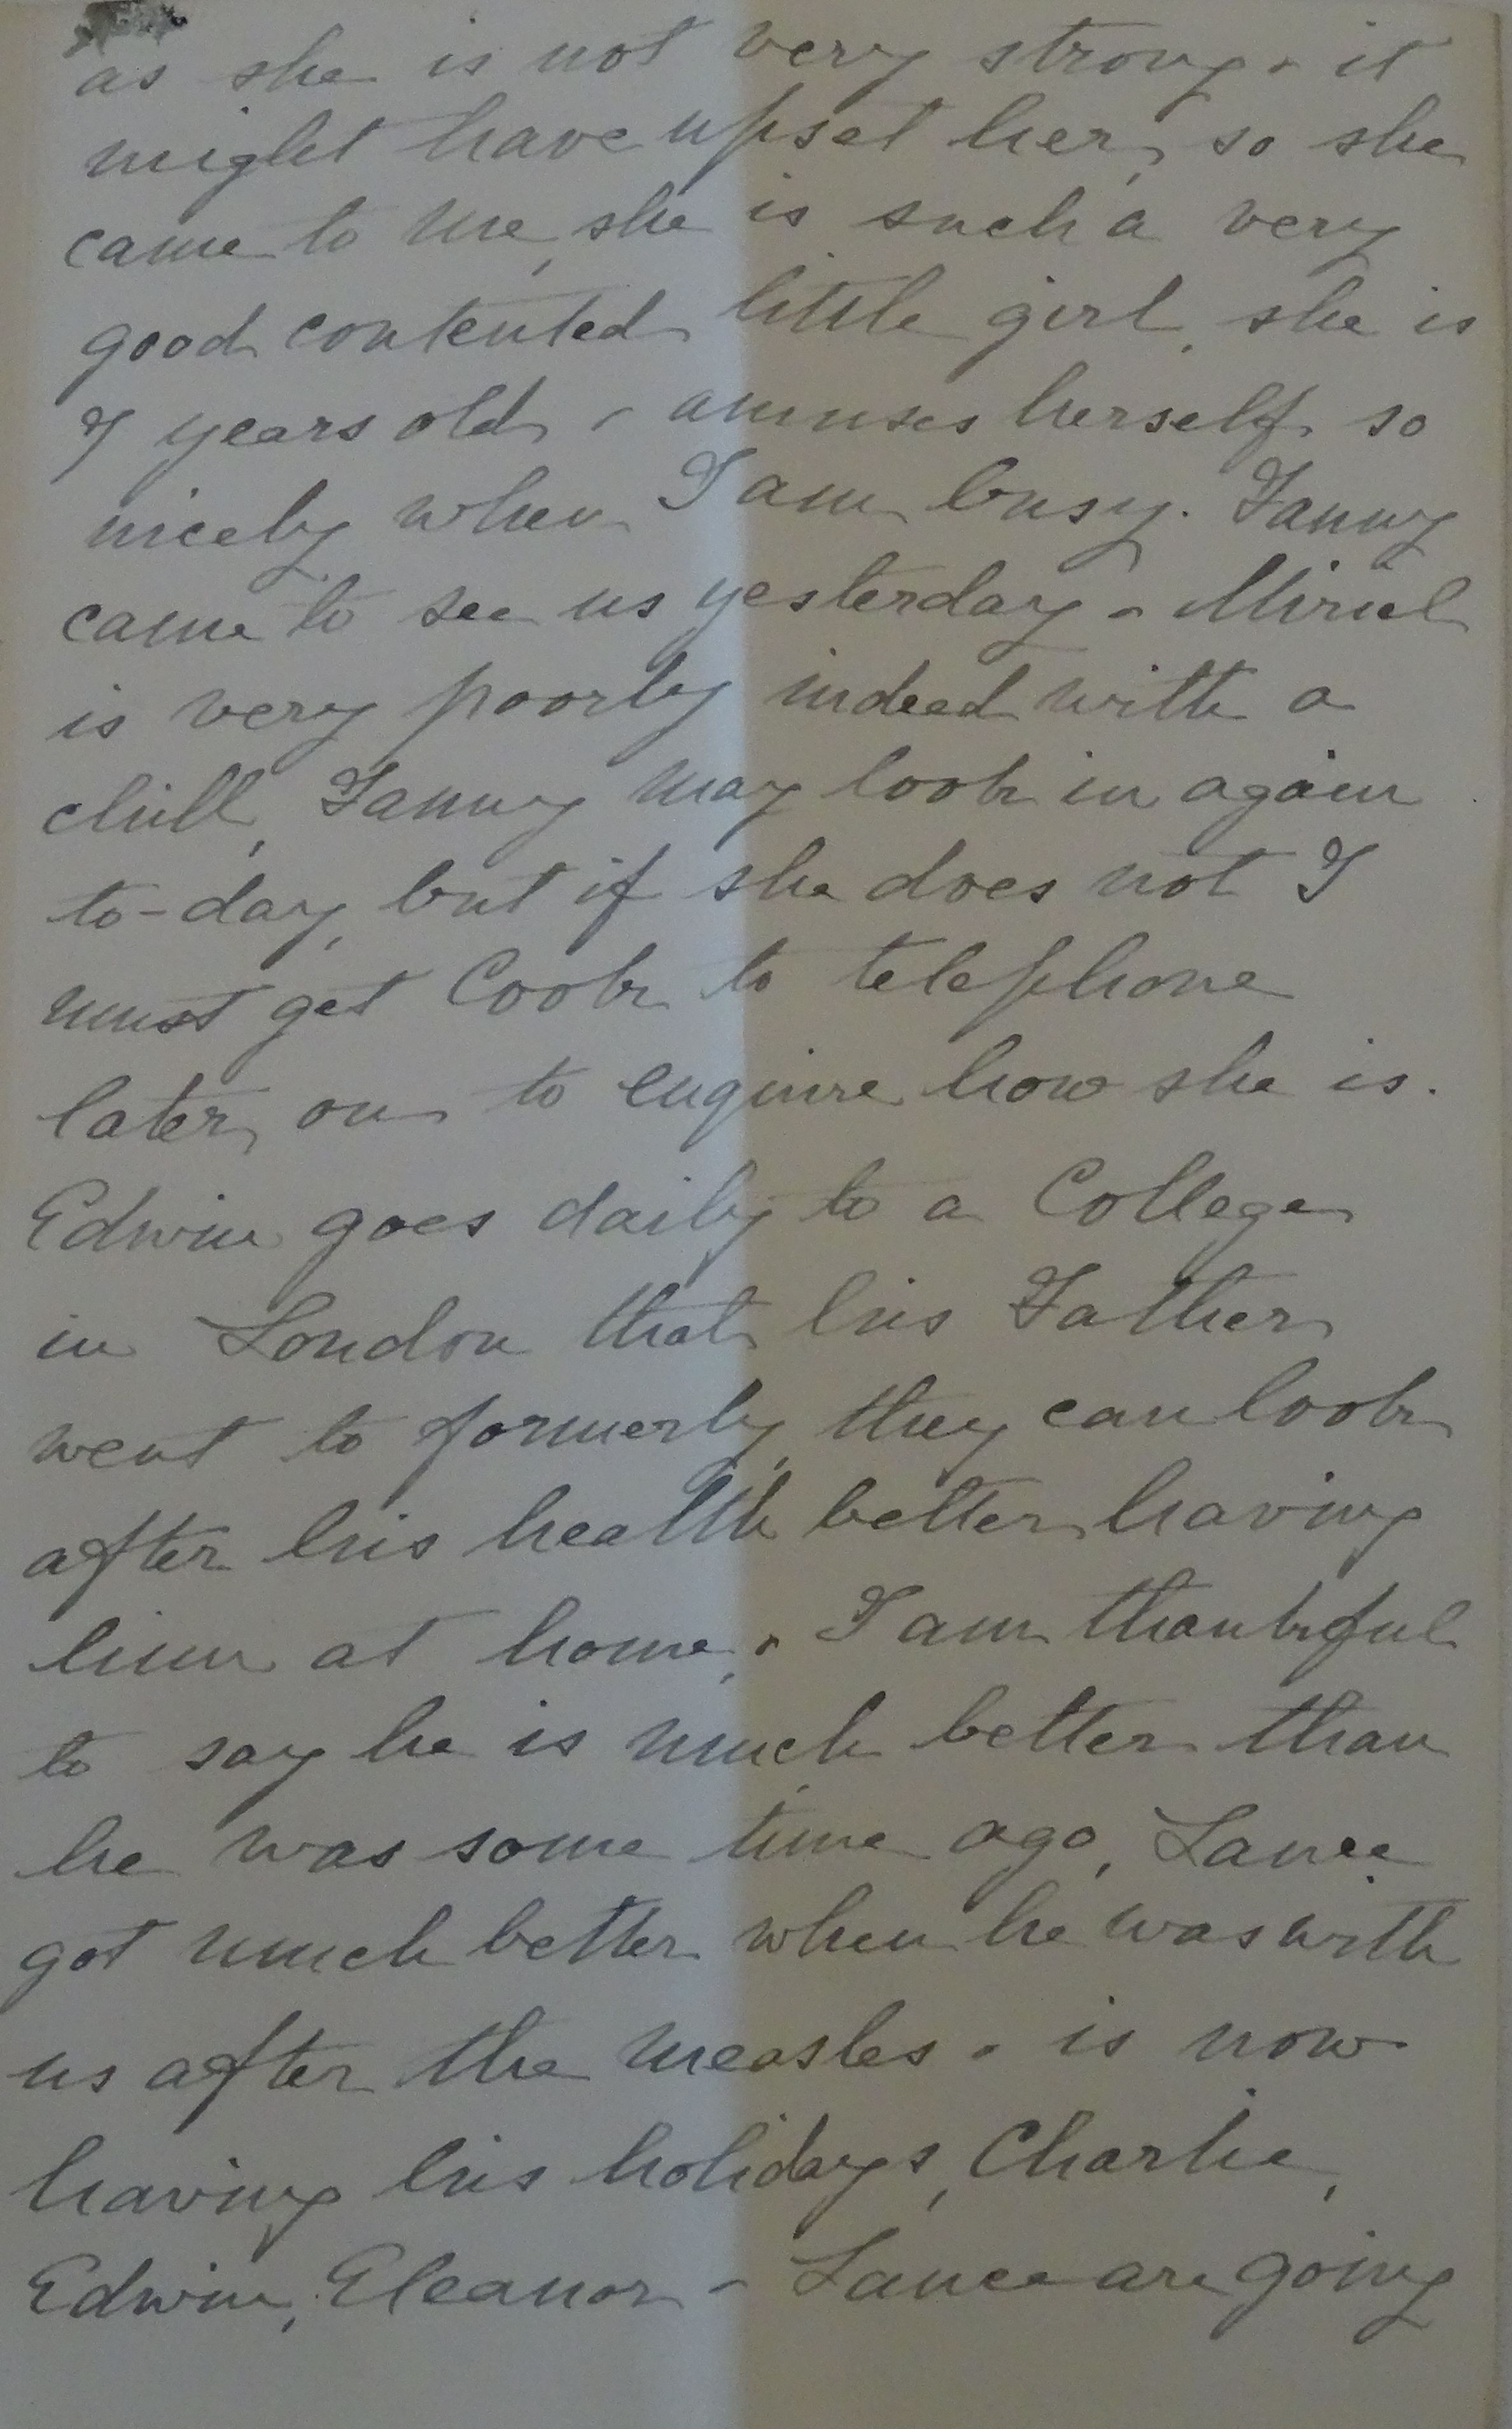 as she is not very strong & it
might have upset her, so she
came to me, she is such a very
good contented little girl, she is
7 years old, & amuses herself so
nicely when I am busy. Fanny
came to see us yesterday & Miriel
is very poorly indeed with a
chill, Fanny may look in again
to-day, but if she does not I
must get Cook to telephone
later on to enquire how she is.
Edwin goes daily to a College
in London that his Father
went to formerly, they can look
after his health better having
him at home, & I am thankful
to say he is much better than
he was some time ago, Lance
got much better when he was with
us after the measles & is now
having his holidays, Charlie,
Edwin, Eleanor & Lance are going